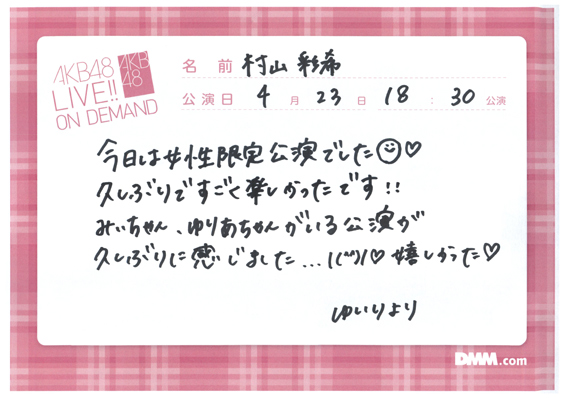 AKB48
LIVE!!
ON DEMAND
AKB
48
名前 村山 彩希
公演日 4月23日 18:30公演
今日は女性限定公演でした☺♡
久しぶりですごく楽しかったです!!
みぃちゃん、ゆりあちゃんがいる公演が
久しぶりに感じました...!(^^)!♡嬉しかった♡
ゆいりより
DMM.com